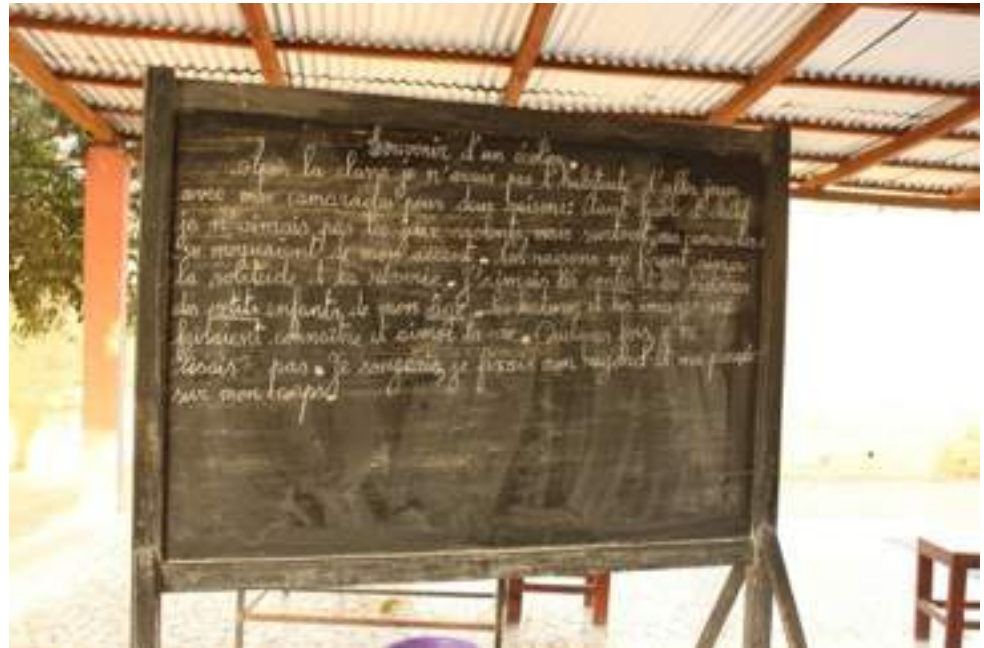 Souvenir d'un écolier.
la classe je n'avais pas l'habitude d'aller jouer
avec mes camarades pour deux raisons:
je n'aimais pas les jeux violents mais surtout
se moquaient de mon accent. Ces raisons me
la solitude et la rêverie. J'aimais les contes et les
des petits enfants de mon âge. et les images me
faisaient connaître et aimer la vie. Quelques fois je ne
lisais pas. Je songeais, je fixais mon regard et ma pensée
sur mon corps.